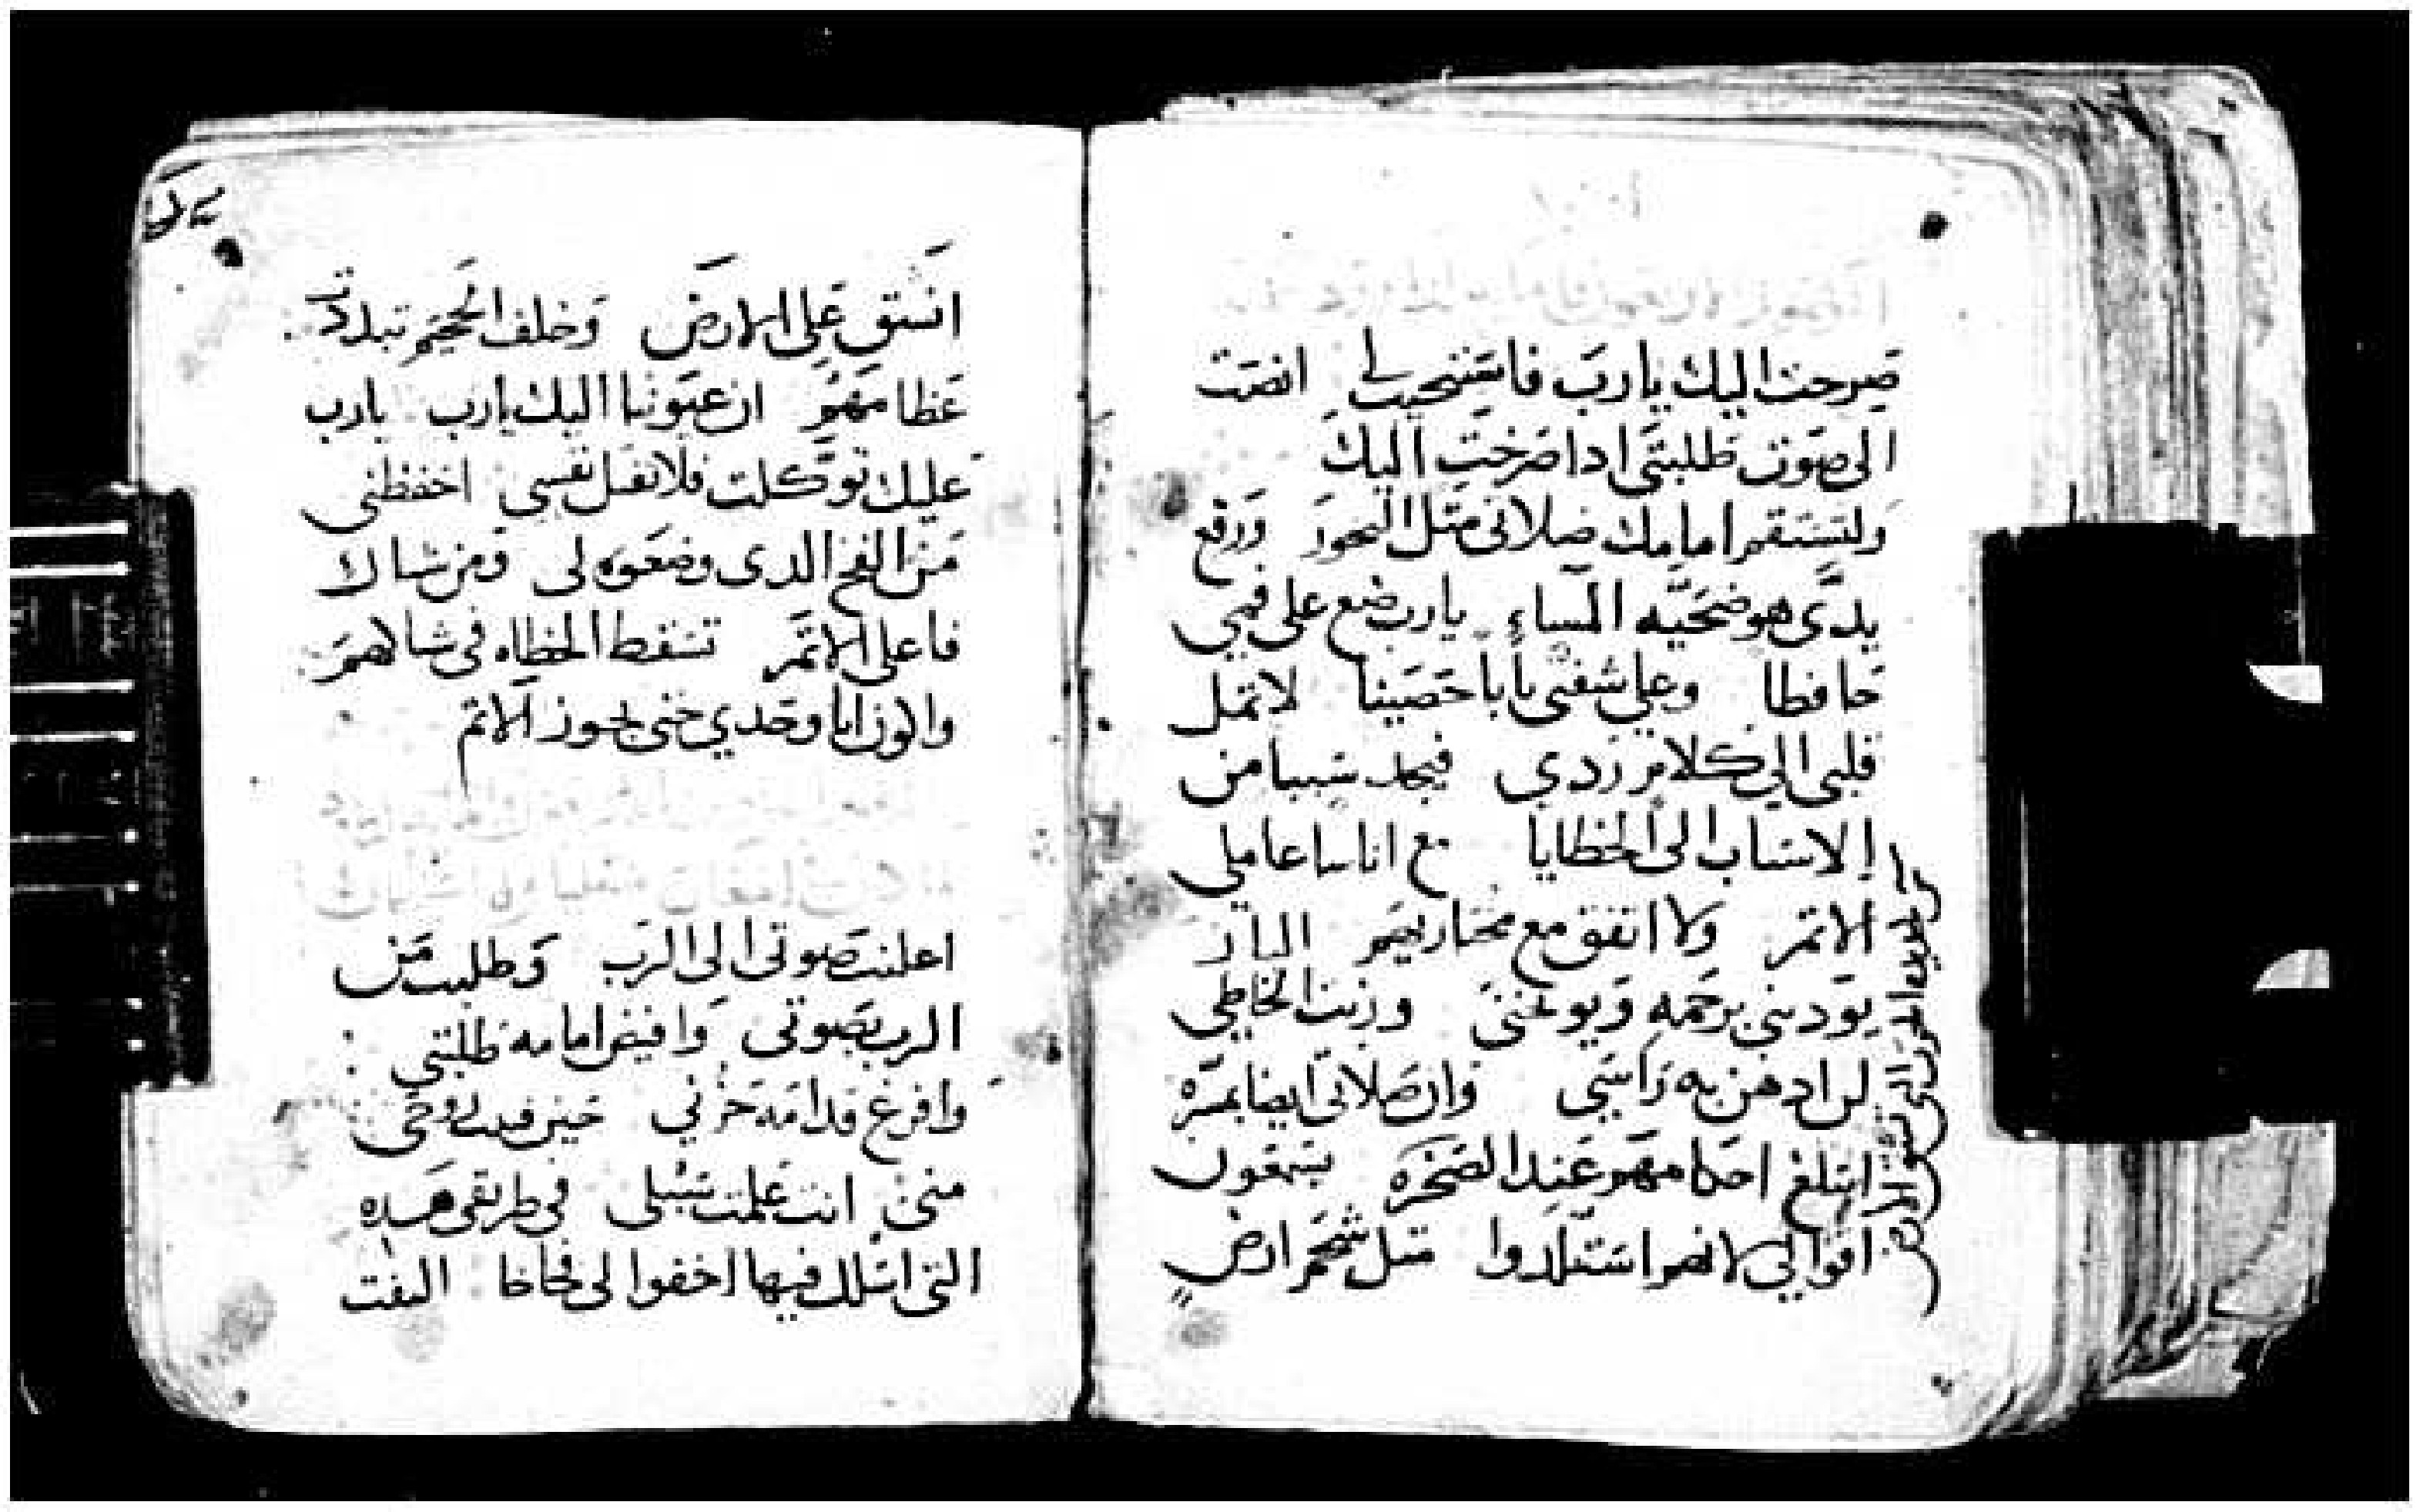 صرخت اليك يا رب فاستجيب لي انصت
الى صوت طلبتى ادا صرخت اليك
ولتستقم امامك صلاتى متل البخور ورفع
يدى هو ضحيه المساء يا رب ضع على فمي
حافطا وعلى شفتى بابا حصينا لا تمل
قلبى الي كلام ردي فيجد سببا من
الاسباب الى الخطايا مع اناسا عاملي
الاتم ولا اتفق مع مختاريهم البار
يودبني برحمه ويوبخنى وزيت الخاطي
لن ادهن به راسي وان صلاتى ايضا بمسره
ابتلغ احكامهم عند الصخره يسمعون
اقوالي لانهم استلدوا متل شحم ارض
انشق على الارض وخلف الجحيم تبددت
عظامهم ان عيوننا اليك يا رب يا رب
عليك توكلت فلا تقتل نفسي احفظنى
من الفخ الدى وضعوه لى ومن شباك
فاعلى الاتم تسقط الخطاه فى شباكهم
واكون انا وحدي حتى يجوز الاتم
اعلنت صوتى الى الرب وطلبت من
الرب بصوتى وافيض امامه طلبتي
وافرغ قدامه حزني حين فنيت روحى
منى انت علمت سبلى في طريقى هده
التى اسلك فيها اخفوا لى فخاخا التفت